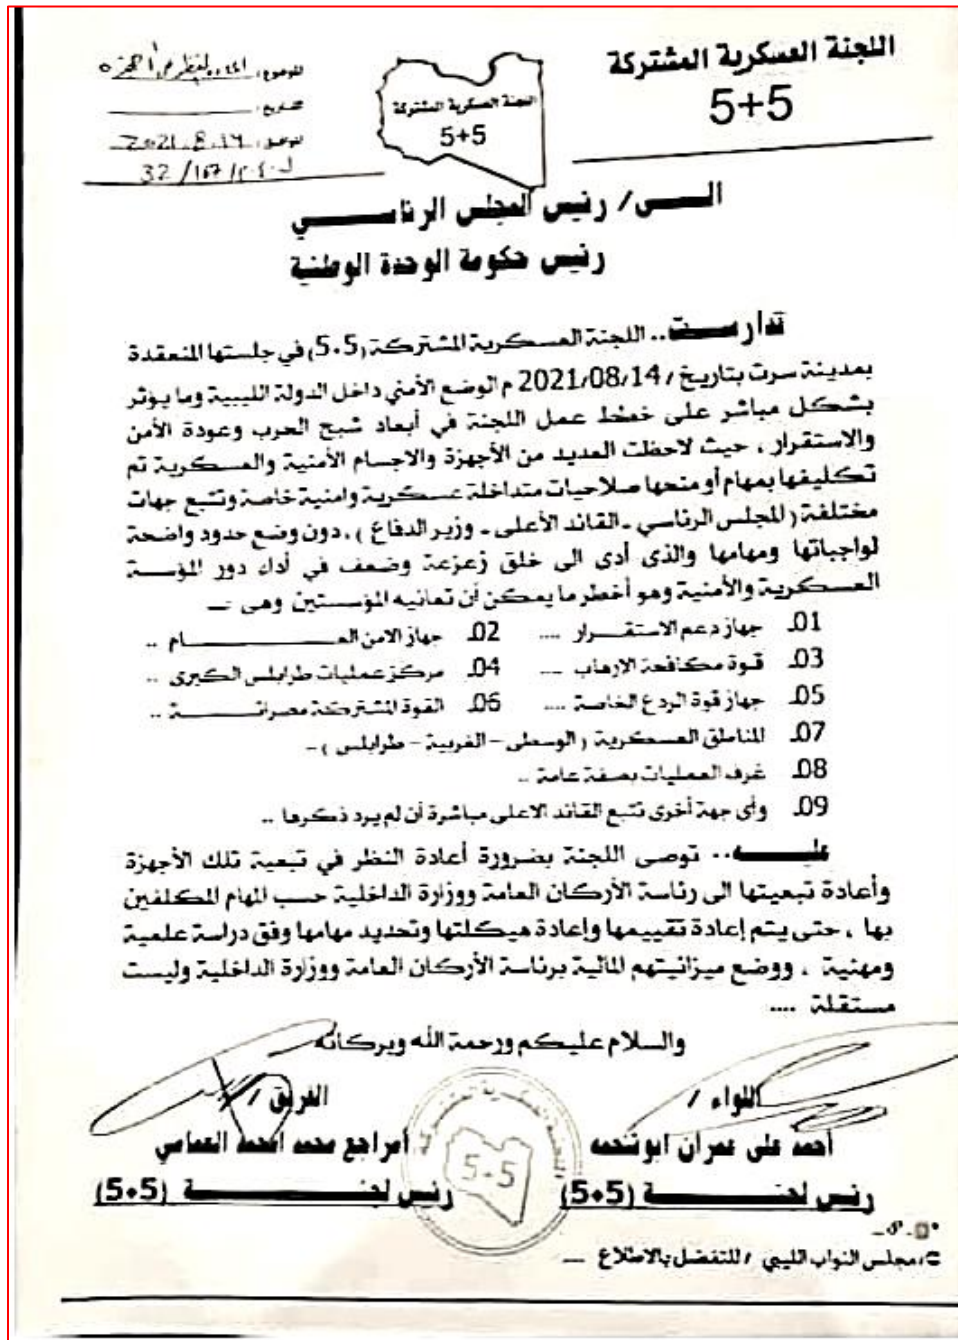 اللجنة العسكرية المشتركة
5+5
اللجنة العسكرية المشتركة
5+5
الموضوع:
2021.8.14
32/167/
الـــى/ رئيس المجلس الرئاســـي
رئيس حكومة الوحدة الوطنية
تدارســت.. اللجنة العسكرية المشتركة (5.5) في جلستها المنعقدة
بمدينة سرت بتاريخ / 2021/08/14 م الوضع الأمني داخل الدولة الليبية وما يؤثر
بشكل مباشر على خطط عمل اللجنة في أبعاد شبح الحرب وعودة الأمن
والاستقرار ، حيث لاحظت العديد من الأجهزة والاجسام الأمنية والعسكرية تم
تكليفها بمهام أو منحها صلاحيات متداخلة عسكرية وامنية خاصة وتتبع جهات
مختلفة (المجلس الرئاسي - القائد الأعلى - وزير الدفاع ) ، دون وضع حدود واضحة
لواجباتها ومهامها والذى أدى الى خلق زعزعة وضعف في أداء دور المؤسسة
العسكرية والأمنية وهو أخطر ما يمكن أن تعانيه المؤسستين وهى :ـ
01ـ جهاز دعم الاستقـــرار .... 02ـ جهاز الامن العــــــــــام ..
03ـ قوة مكافحة الارهاب .... 04ـ مركز عمليات طرابلس الكبرى ..
05ـ جهاز قوة الردع الخاصة .... 06ـ القوة المشتركة مصراتــــــة ..
07ـ المناطق العسكرية (الوسطى - الغربية - طرابلس ) -
08ـ غرف العمليات بصفة عامة ..
09ـ وأى جهة أخرى تتبع القائد الاعلى مباشرة أن لم يرد ذكرها ..
عليـــــه.. توصى اللجنة بضرورة أعادة النظر في تبعية تلك الأجهزة
وأعادة تبعيتها الى رئاسة الأركان العامة ووزارة الداخلية حسب المهام المكلفين
بها ، حتى يتم إعادة تقييمها وإعادة هيكلتها وتحديد مهامها وفق دراسة علمية
ومهنية ، ووضع ميزانيتهم المالية برئاسة الأركان العامة ووزارة الداخلية وليست
مستقلة ....
والسلام عليكم ورحمة الله وبركاته
اللواء / الفريق /
أحمد على عمران ابوشحمه امراجع محمد امحمد العمامي
رئيس لجنـــــــة (5+5) رئيس لجنـــــــة (5+5)
5+5
مجلس النواب الليبي / للتفضل بالاطلاع ـــ